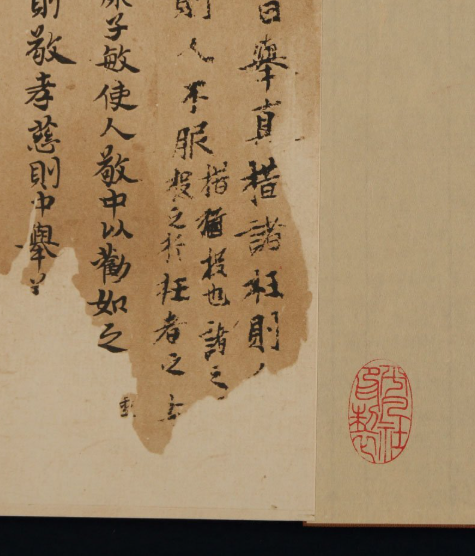 曰舉直措諸枉則
則人不服
措猶投也諸之
投之於枉者之上
康子敏使人敬中以勸如之
則敬孝慈則中舉